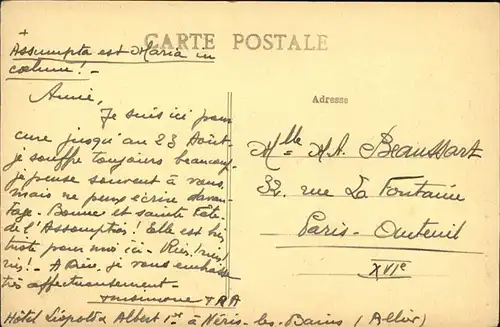 +
CARTE POSTALE
Assumpta est Maria in
cœlum! -
Amie,
Je suis ici pour
cure jusqu'au 23 Août.
je souffre toujours beaucoup.
je pense souvent à vous,
mais ne peux écrire davan-
tage. Bonne et sainte Fête
de l'Assomption! Elle est bien
triste pour moi ici. Riez! riez!
riez! - A Dieu, je vous embrasse
très affectueusement.
+ RA
Hôtel Léopold & Albert 1er à Néris-les-Bains (Allier)
Adresse
Mlle M.A. Beaussart
32. rue La Fontaine
Paris-Auteuil
XVIe